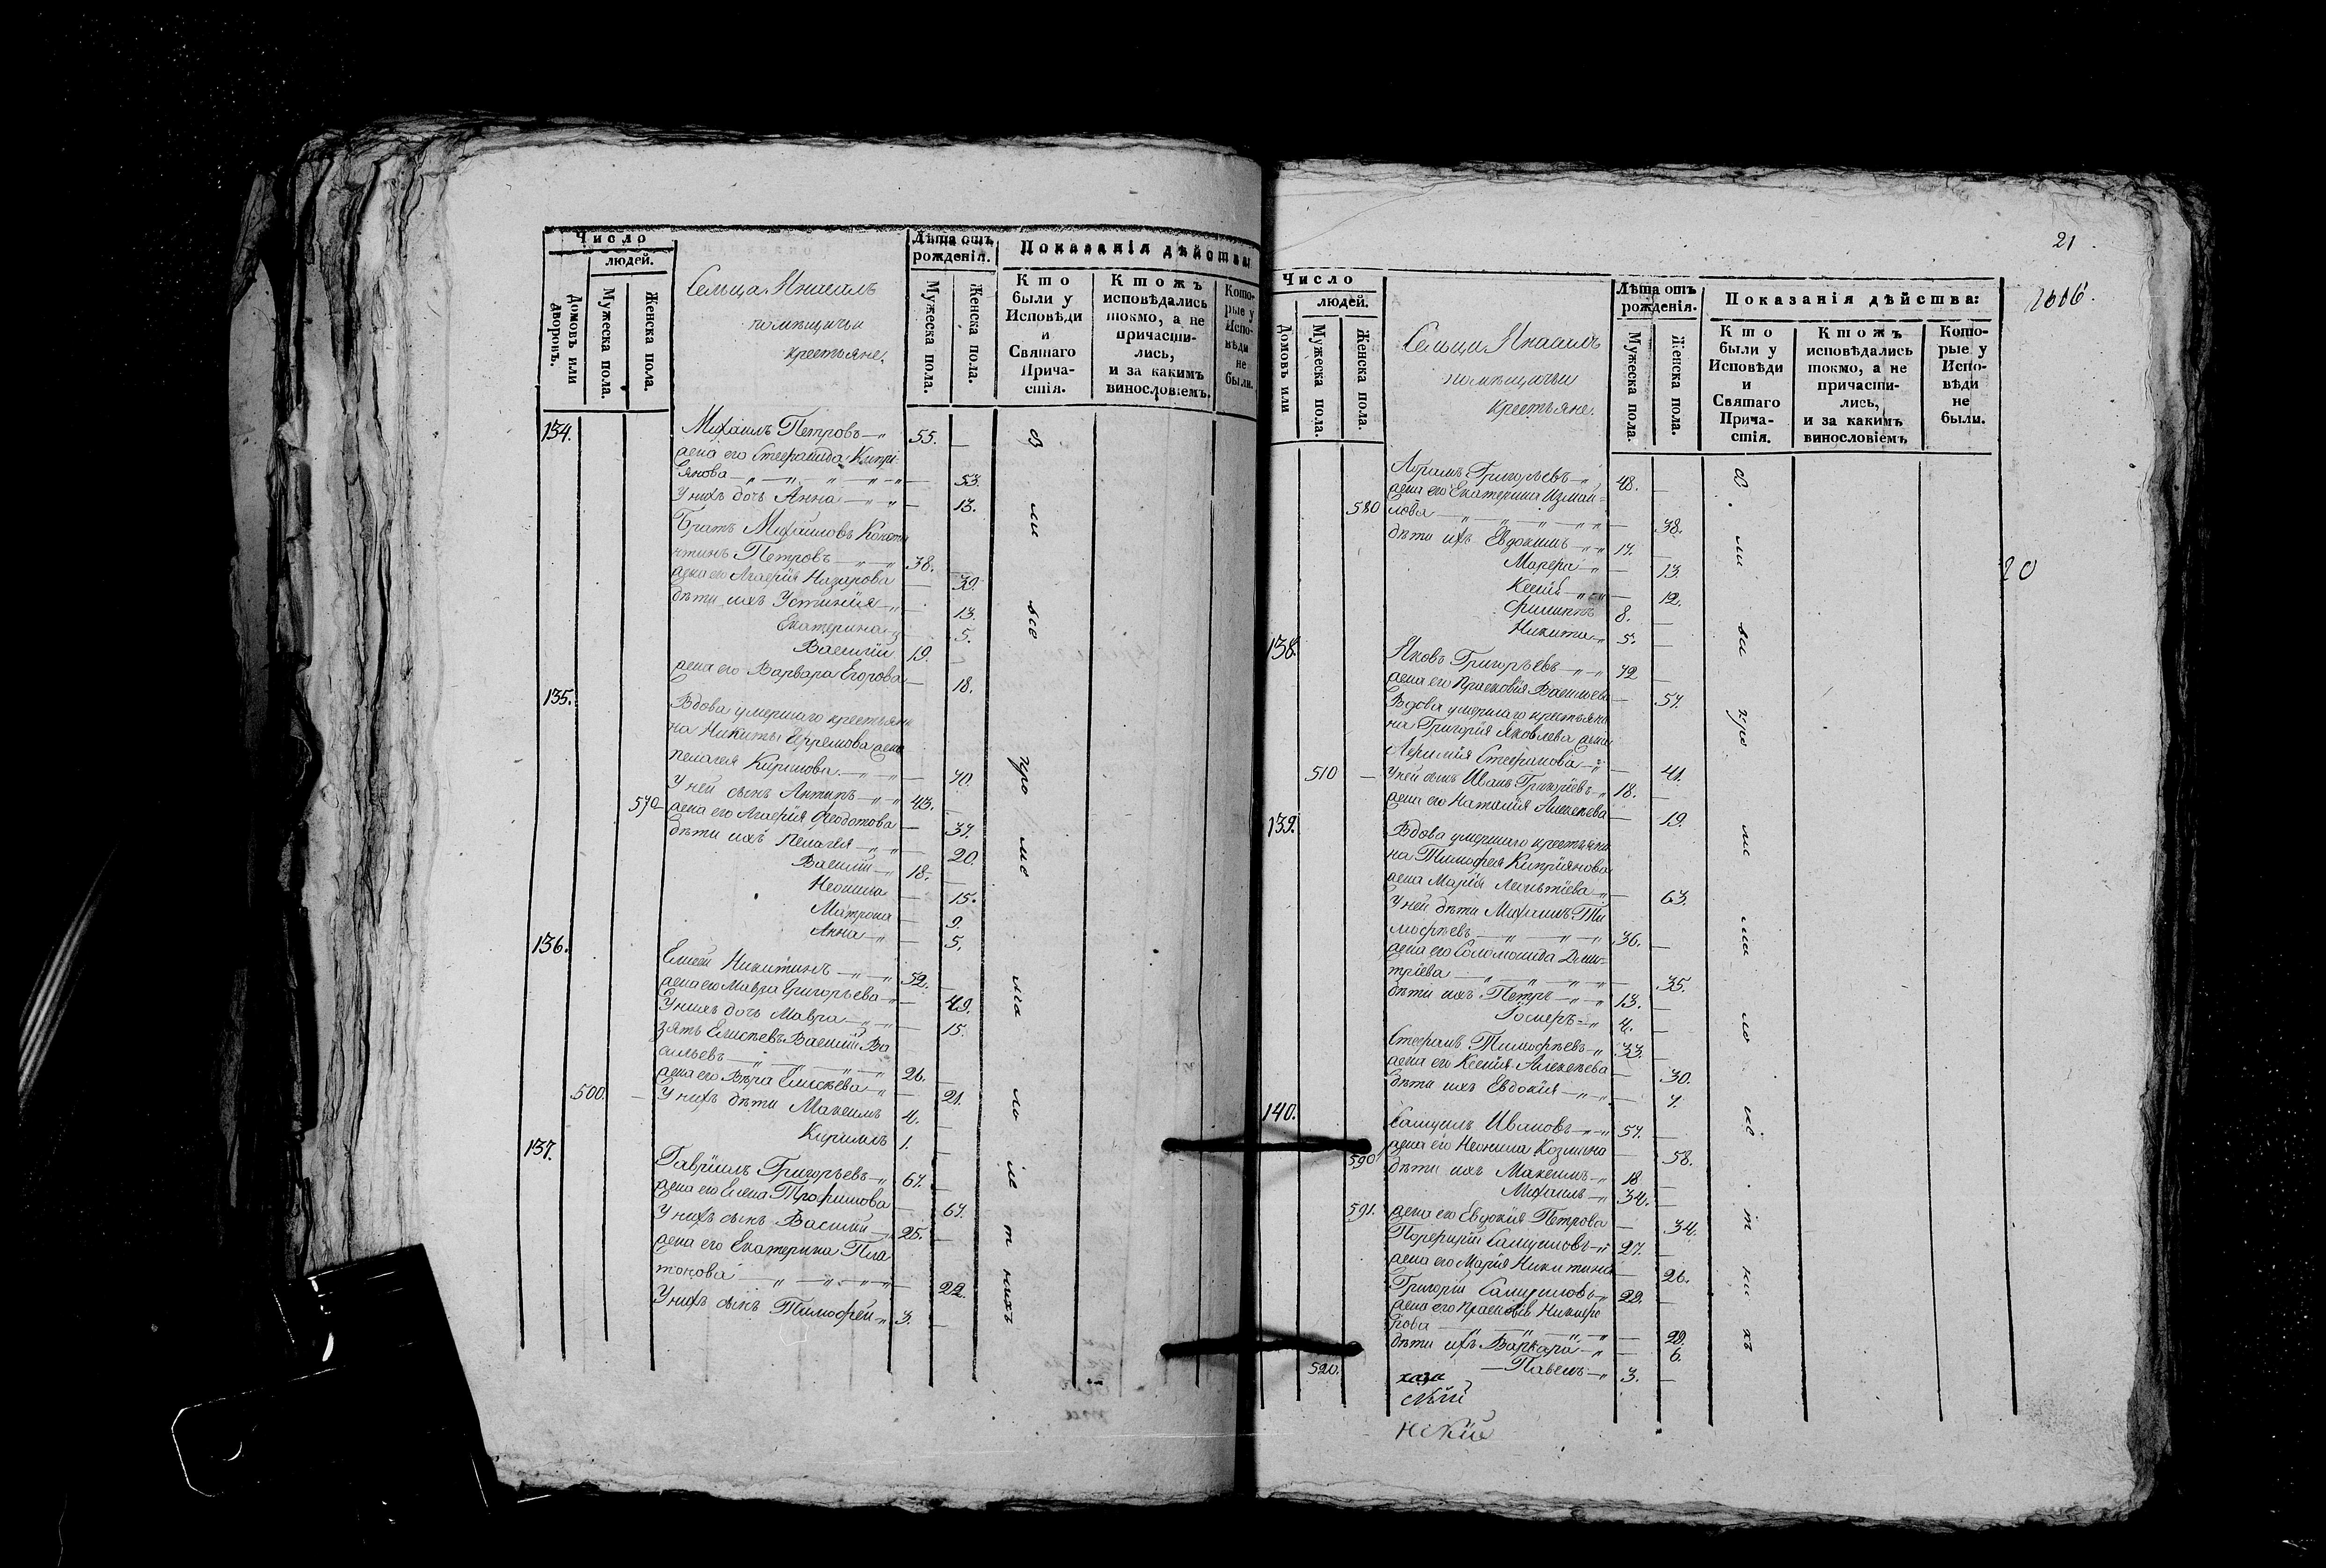 Число
людей.
Домовъ или дворовъ.
Мужеска пола.
Женска пола.
Сельца
помѣщичьи
крестьяне.
Лѣта отъ рожденія.
Мужеска пола.
Женска пола.
Показанія дѣйства
Кто были у Исповѣди и Святаго Причастія.
Ктожъ исповѣдались токмо, а не причастились, и за какимъ винословіемъ.
Которые у Исповѣди не были.
134. Михаилъ Петровъ 55.
жена его Стефанида Кипрі-
янова 53.
У нихъ дочь Анна 13.
Братъ Михаиловъ Конста
нтинъ Петровъ 38.
жена его Агафія Назарова 39.
дѣти ихъ Устинія 13.
Екатерина 5.
Василій 19.
жена его Варвара Егорова 18.
135. Вдова умершаго крестьяни
на Никиты Ефремова жена
Пелагея Кирилова 70.
У ней сынъ Антипъ 43.
570 жена его Агафія Федотова 37.
дѣти ихъ Пелагея 20.
Василій 18.
Неонила 15.
Матрона 9.
Анна 5.
136. Елисей Никитинъ 52.
жена его Мавра Григорьева 49.
У нихъ дочь Мавра 15.
зять Елисѣевъ Василій Ва
сильевъ 26.
жена его Вѣра Елисѣева 21.
500. У нихъ дѣти Максимъ 4.
Кирилъ 1.
137. Гавріилъ Григорьевъ 67.
жена его Елена Трофимова 67.
У нихъ сынъ Василій 25.
жена его Екатерина Пла
тонова 22.
У нихъ сынъ Тимофей 3.
21
Число
людей.
Домовъ или
Мужеска пола.
Женска пола.
Сельца
помѣщичьи
крестьяне.
Лѣта отъ рожденія.
Мужеска пола.
Женска пола.
Показанія дѣйства:
Кто были у Исповѣди и Святаго Причастія.
Ктожъ исповѣдались токмо, а не причастились, и за какимъ винословіемъ
Которые у Исповѣди не были.
20
Абрамъ Григорьевъ 48.
жена его Екатерина Измаи-
580 лова 38.
дѣти ихъ Евдокимъ 17.
Марфа 13.
Ксенія 12.
Филиппъ 8.
Никита 5.
138. Яковъ Григорьевъ 72
жена его Прасковія Васильева 57.
Вдова умершаго крестьяни
на Григорія Яковлева жена
Афимія Стефанова 41.
510 У ней сынъ Иванъ Григорьевъ 18.
жена его Наталія Алексѣева 19.
139. Вдова умершаго крестьяни
на Тимофея Кипріянова
жена Марія 63.
У ней дѣти Михаилъ Ти
мофѣевъ 36.
жена его Соломонида Дми-
тріева 35.
дѣти ихъ Петръ 13.
4.
Стефанъ Тимофѣевъ 33.
жена его Ксенія Алексѣева 30.
дѣти ихъ Евдокія 7.
140. Самуилъ Ивановъ 57.
жена его Неонила Козмина 58.
590 дѣти ихъ Максимъ 18
Михаилъ 34.
591. жена его Евдокія Петрова 34.
Порфирій Самуиловъ 27.
жена его Марія Никитина 26.
Григорій Самуиловъ 29.
жена его Прасковія Никифо
рова 29.
дѣти ихъ Варвара 6.
520. Павелъ 3.
нскій